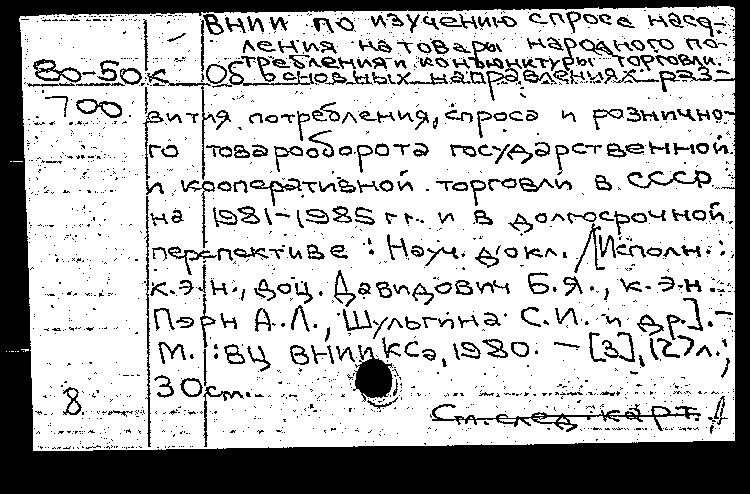 ВНИИ по изучению спроса насе-
ления на товары народного по-
требления и конъюнктуры торговли.
80-50к Об основных направлениях раз-
700 вития потребления, спроса и рознично-
го товарооборота государственной
и кооперативной торговли в СССР
на 1981-1985 гг. и в долгосрочной
перспективе : Науч. докл. / [Исполн.:
к.э.н., доц. Давидович Б.Я., к.э.н.
Пэрн А.Л., Шульгина С.И. и др.]. -
М. : ВЦ ВНИИКСа, 1980. - [3], (2) л.;
8 30 см.
См. след карт.